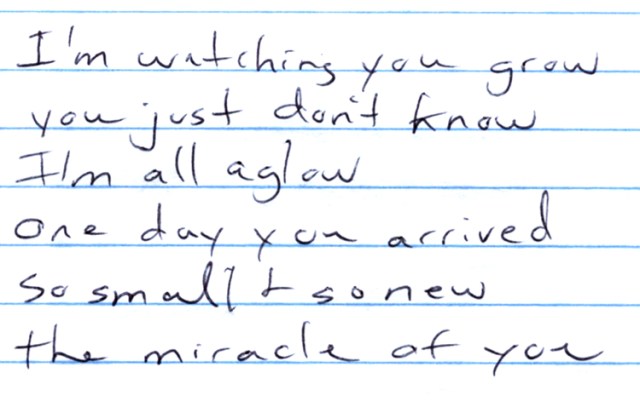 I'm watching you grow
you just don't know
I'm all aglow
one day you arrived
so small & so new
the miracle of you